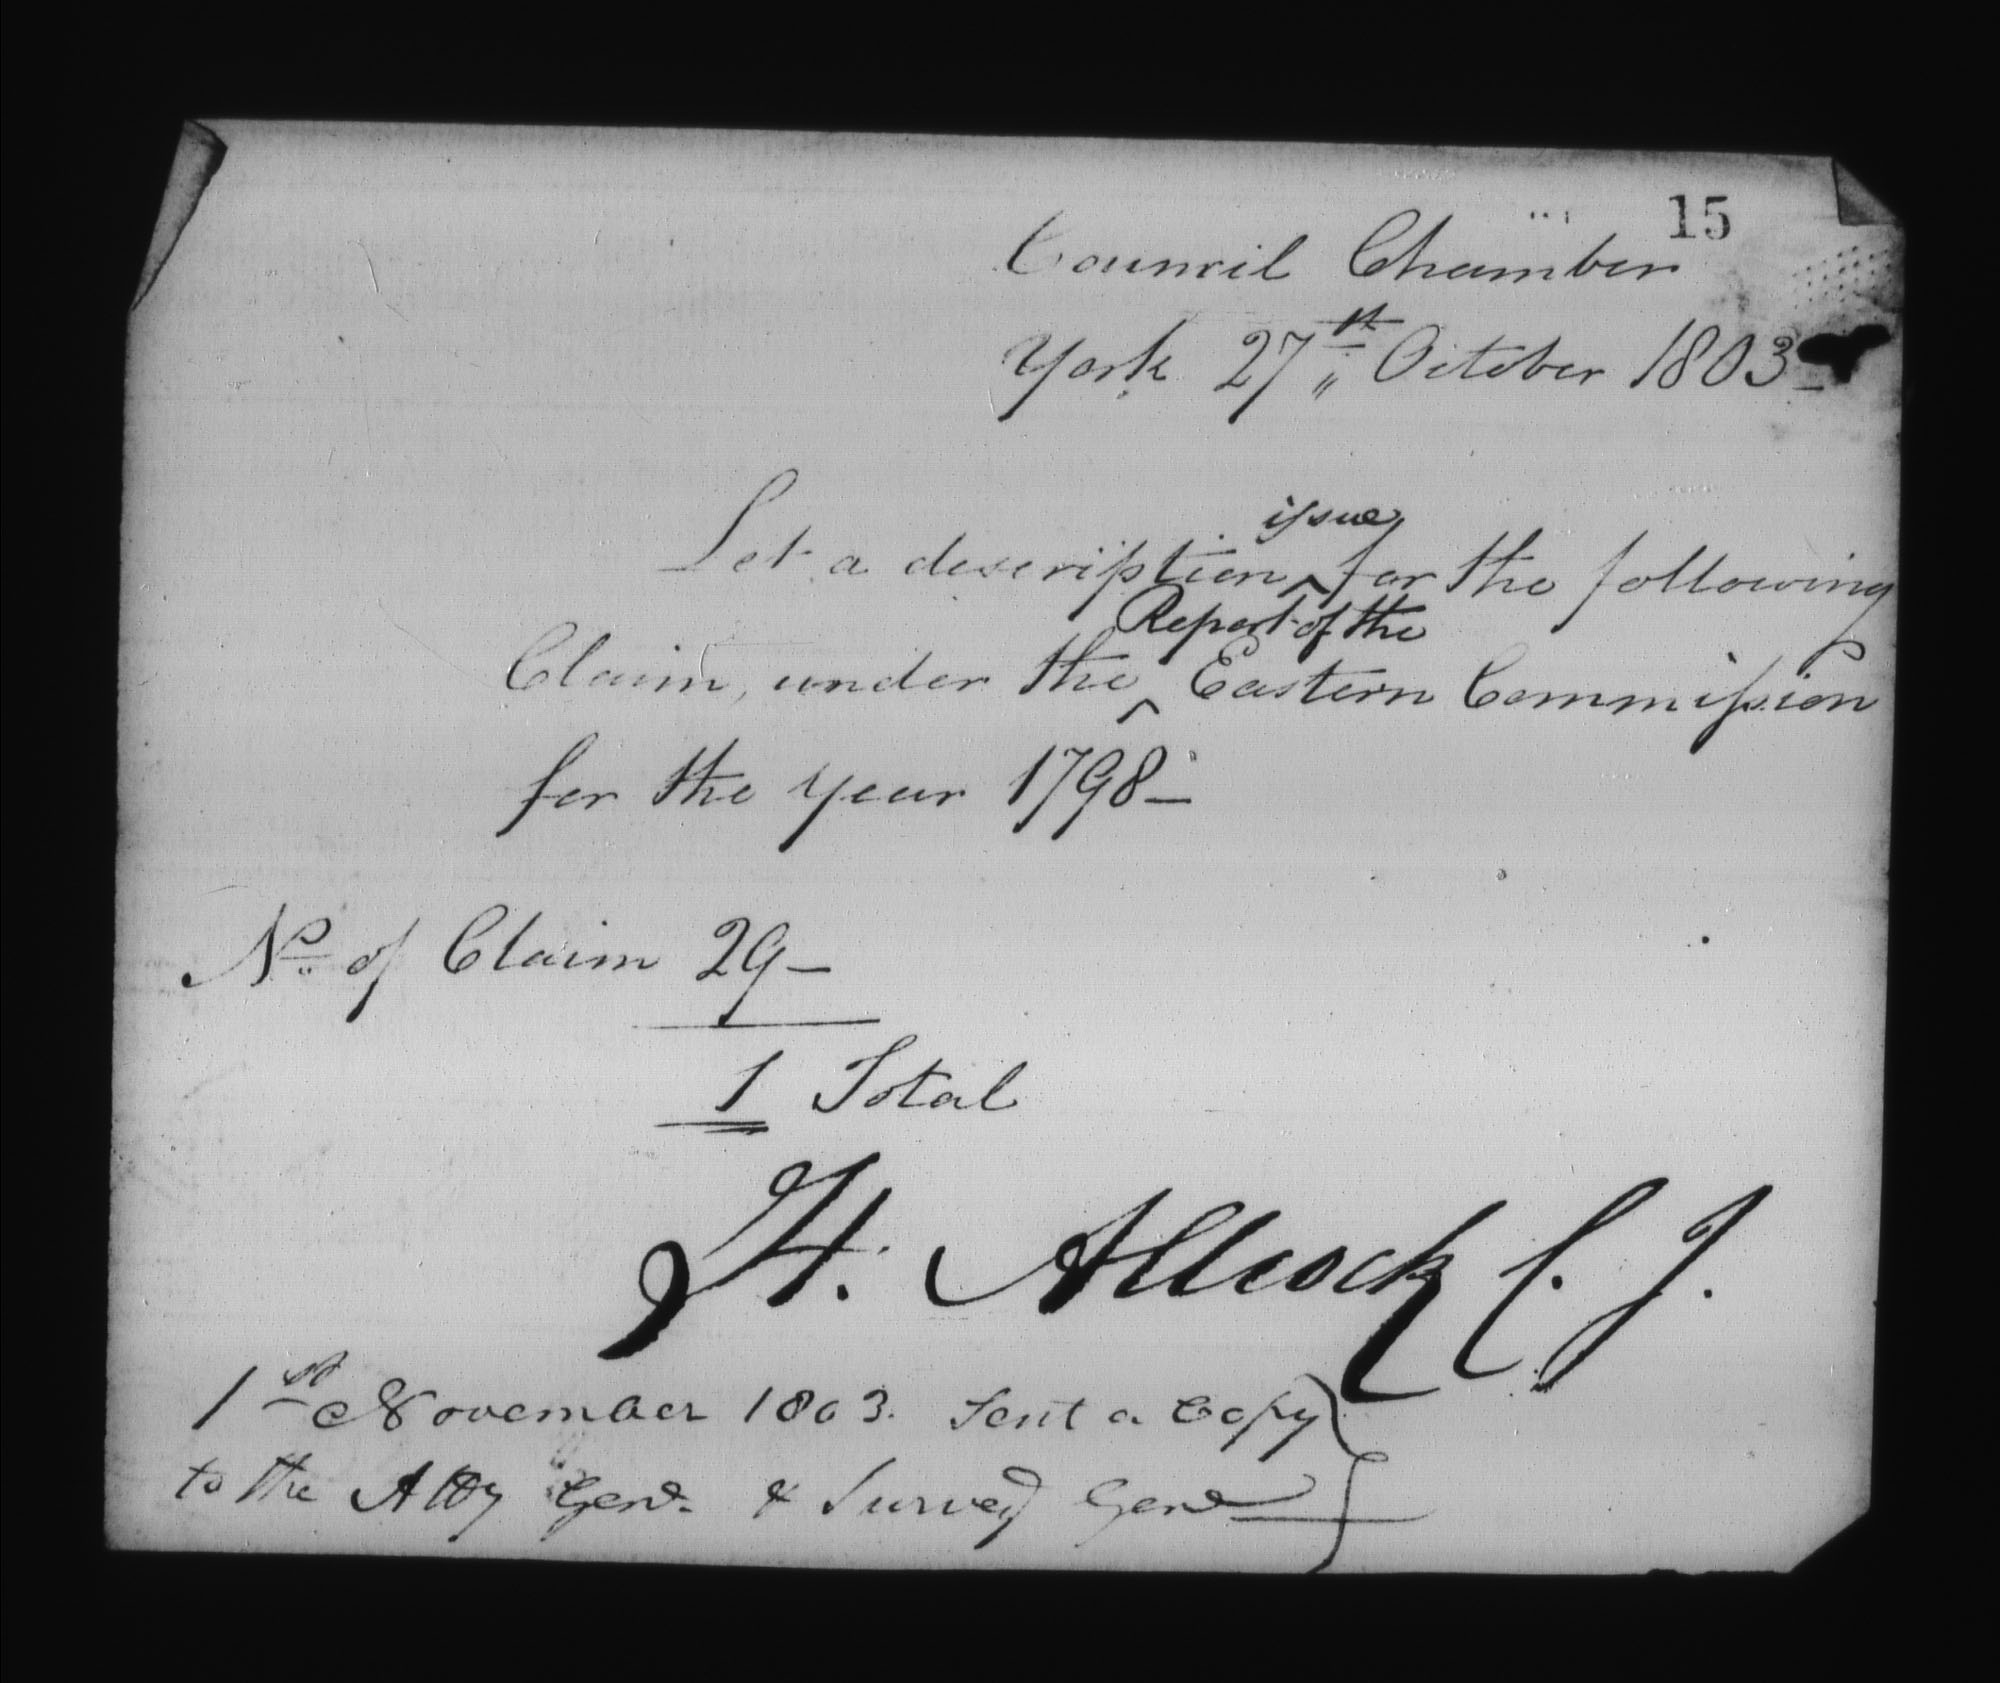 15
Council Chamber
York 27th October 1803 –
issue
Let a description ^ for the following
Report of the
Claim, under the ^ Eastern Commission
for the year 1798 –
No. of Claim 29 –
1 Total
H. Allcock C. J.
1st November 1803. Sent a Copy
to the Atty Genl. & Survey Genl